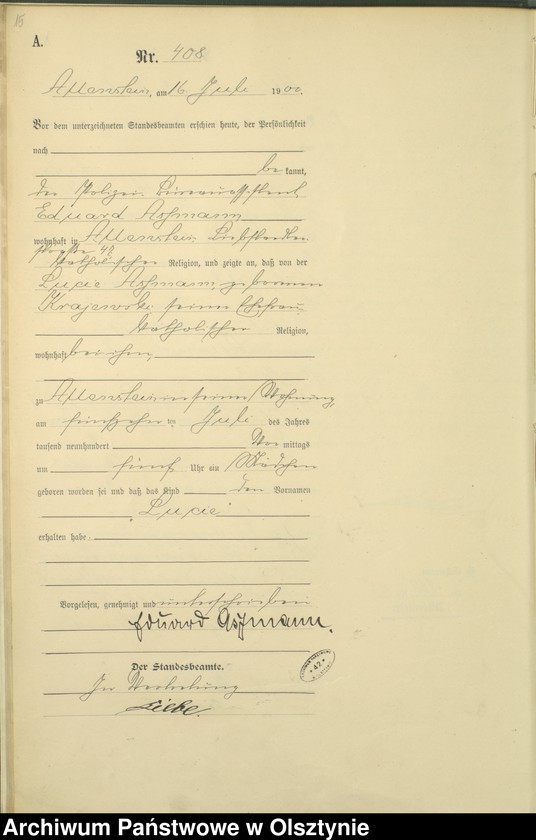 15
A.
Nr. 408
Allenstein, am 16. Juli 1900.
Vor dem unterzeichneten Standesbeamten erschien heute, der Persönlichkeit
nach
be kannt,
der Polizei-Bureauassistent
Eduard Aßmann
wohnhaft in Allenstein
straße 45
katholischer Religion, und zeigte an, daß von der
Lucie Aßmann, geborenen
Krajewski seiner Ehefrau
katholischer Religion,
wohnhaft bei ihm,
zu Allenstein, in seiner Wohnung,
am fünfzehnten Juli des Jahres
tausend neunhundert Vor mittags
um fünf Uhr ein Mädchen
geboren worden sei und daß das Kind den Vornamen
"Lucie"
erhalten habe.
Vorgelesen, genehmigt und unterschrieben
Eduard Aßmann.
Der Standesbeamte.
In Vertretung
42
Archiwum Państwowe w Olsztynie